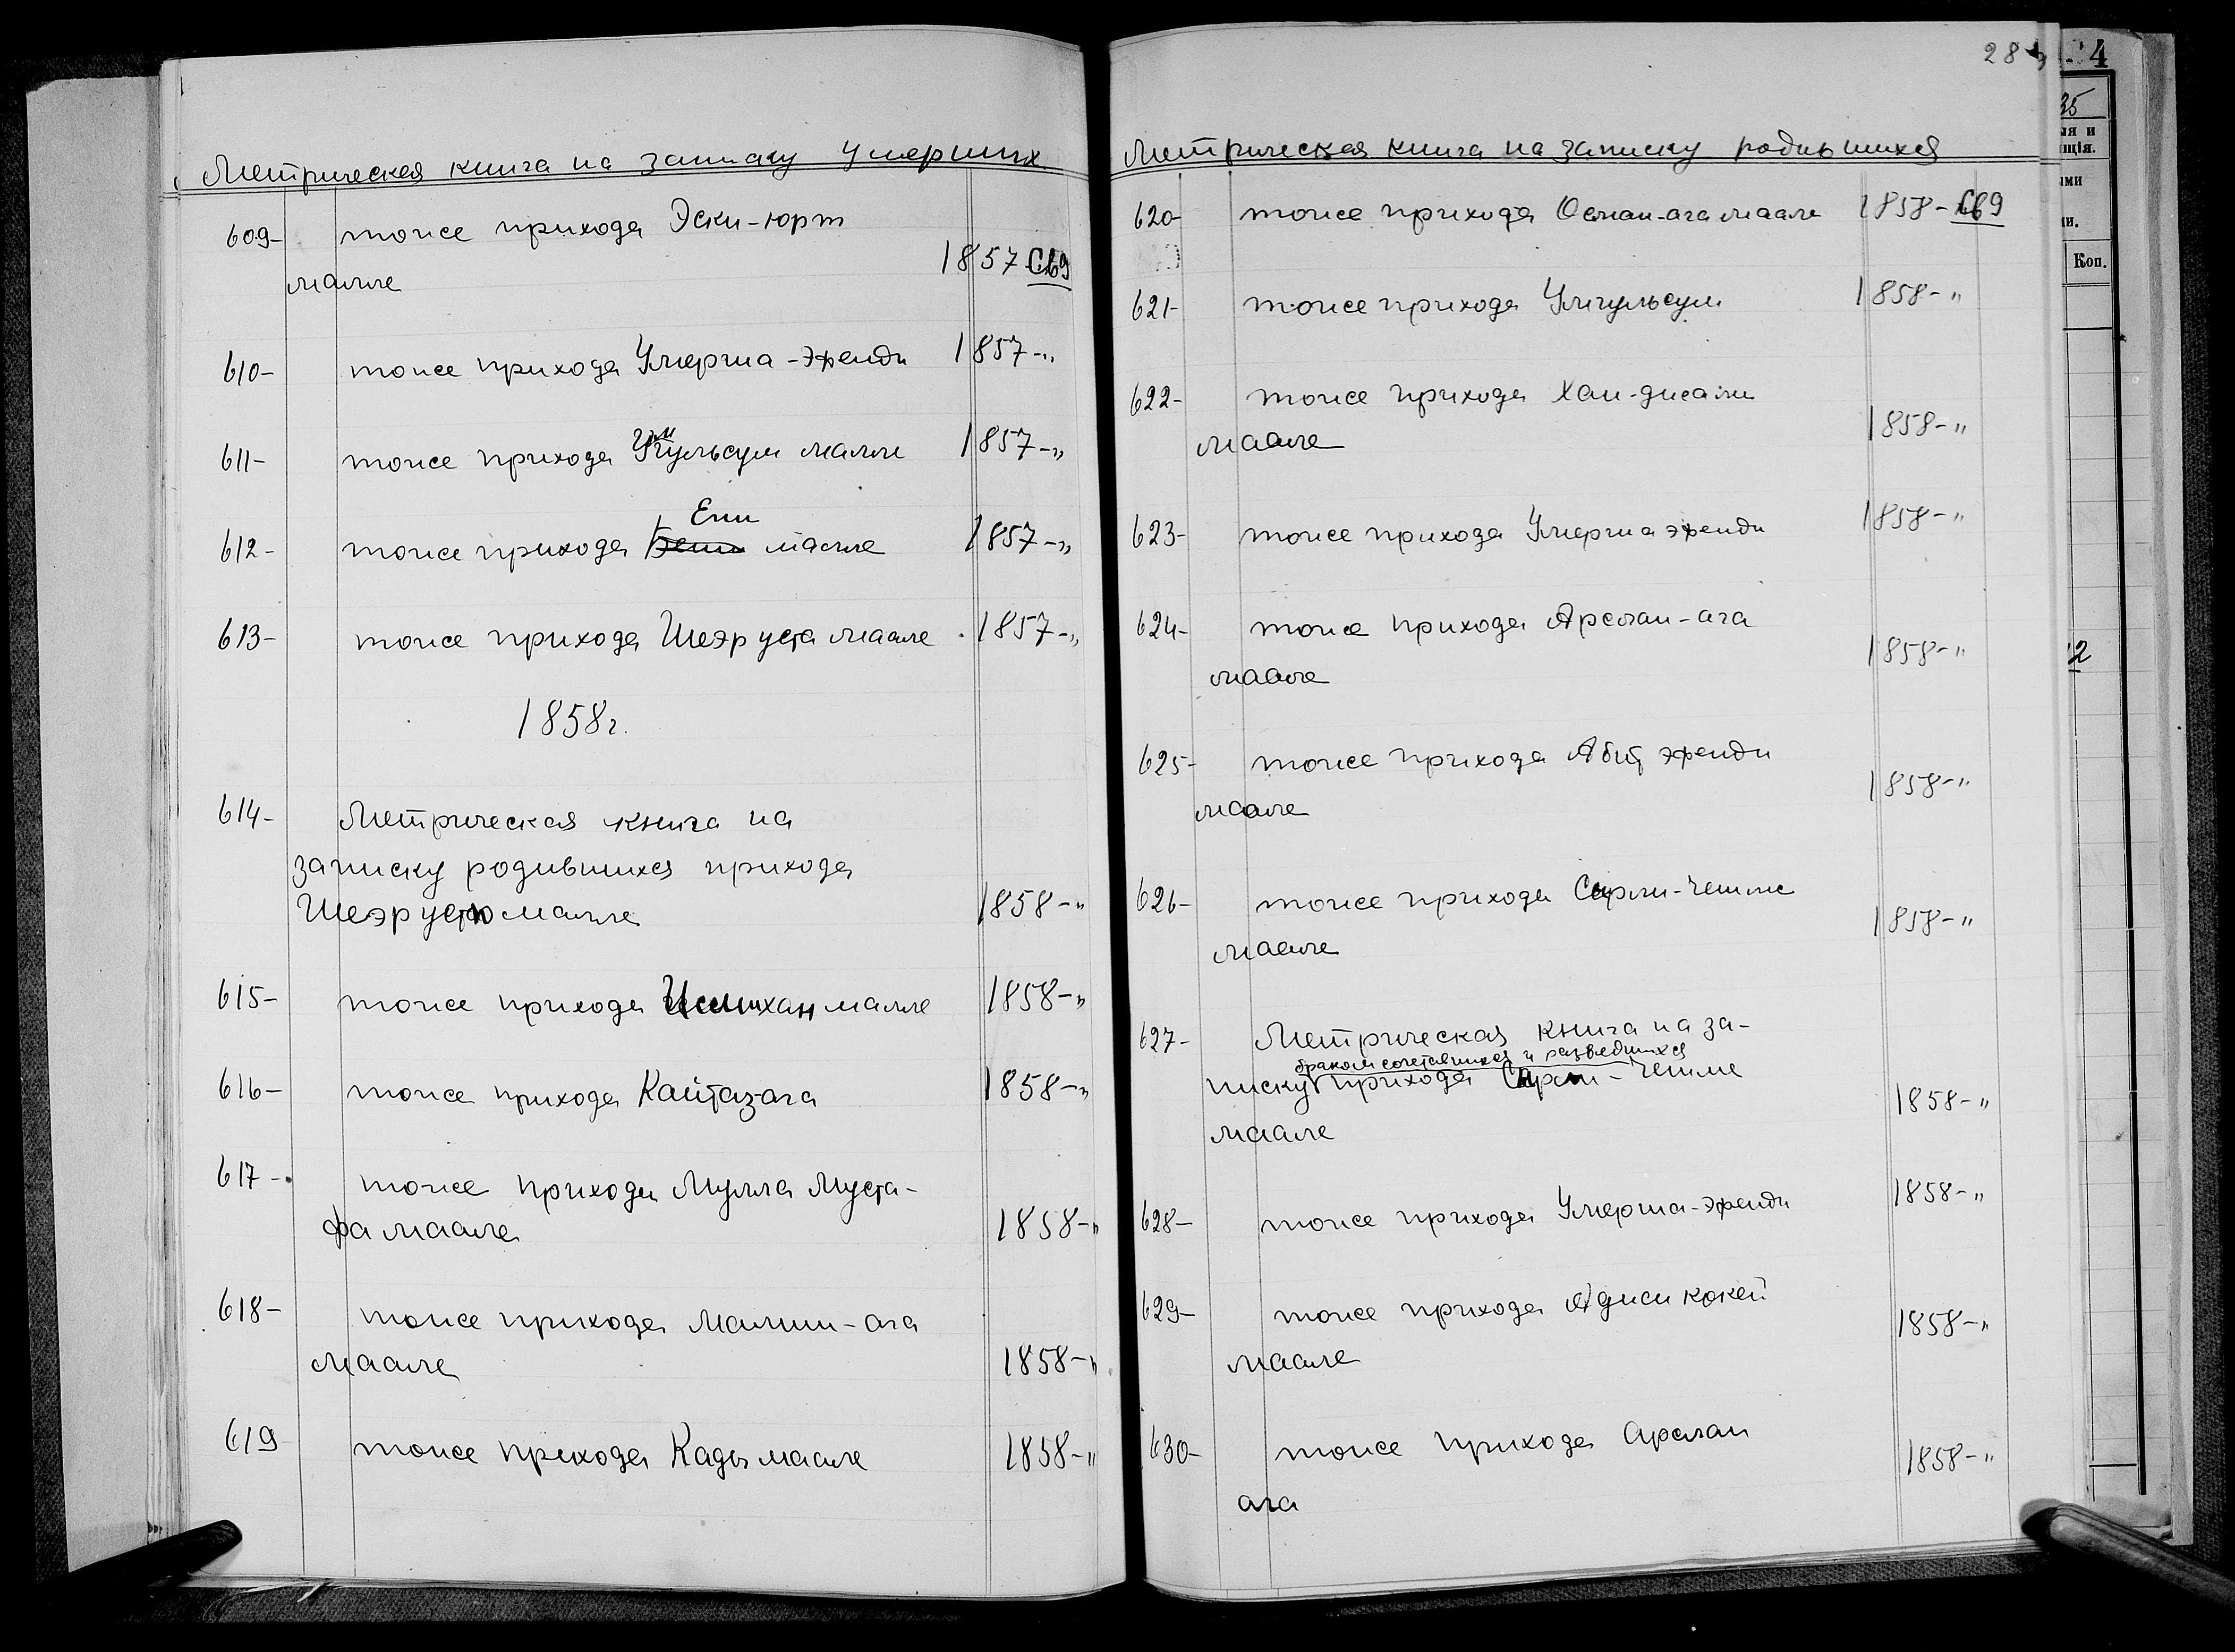 Метрическая книга на записку умерших
609- тоже прихода Эски-юрт
маале 1857 Св9
610- тоже прихода Умерша-эфенди 1857-"
611- тоже прихода Умгульсум маале 1857-"
Ени
612- тоже прихода маале 1857-"
613- тоже прихода Шеэр уста маале 1857-"
1858г.
614- Метрическая книга на
записку родившихся прихода
Шеэр уста маале 1858-"
615- тоже прихода маале 1858-"
616- тоже прихода Кайтаз-ага 1858-"
617- тоже прихода Мулла Муста-
фа маале 1858-"
618- тоже прихода ага
маале 1858-"
619 тоже прихода Кады маале 1858-"
28
Метрическая книга на записку родившихся
620- тоже прихода Осман-ага маале 1858- Св9
621- тоже прихода Умгульсум 1858-"
622- тоже прихода Хан-джами
маале 1858-"
623- тоже прихода Умерша эфенди 1858-"
624- тоже прихода Арслан-ага
маале 1858-"
625- тоже прихода Абит эфенди
маале 1858-"
626- тоже прихода Сырлы-чешме
маале 1858-"
627- Метрическая книга на за-
браком сочетавшихся и разведшихся
писку прихода чешме
маале 1858-"
628- тоже прихода Умерша-эфенди 1858-"
629- тоже прихода Аджи кокей
маале 1858-"
630- тоже прихода Арслан
ага 1858-"
4
35
Коп.